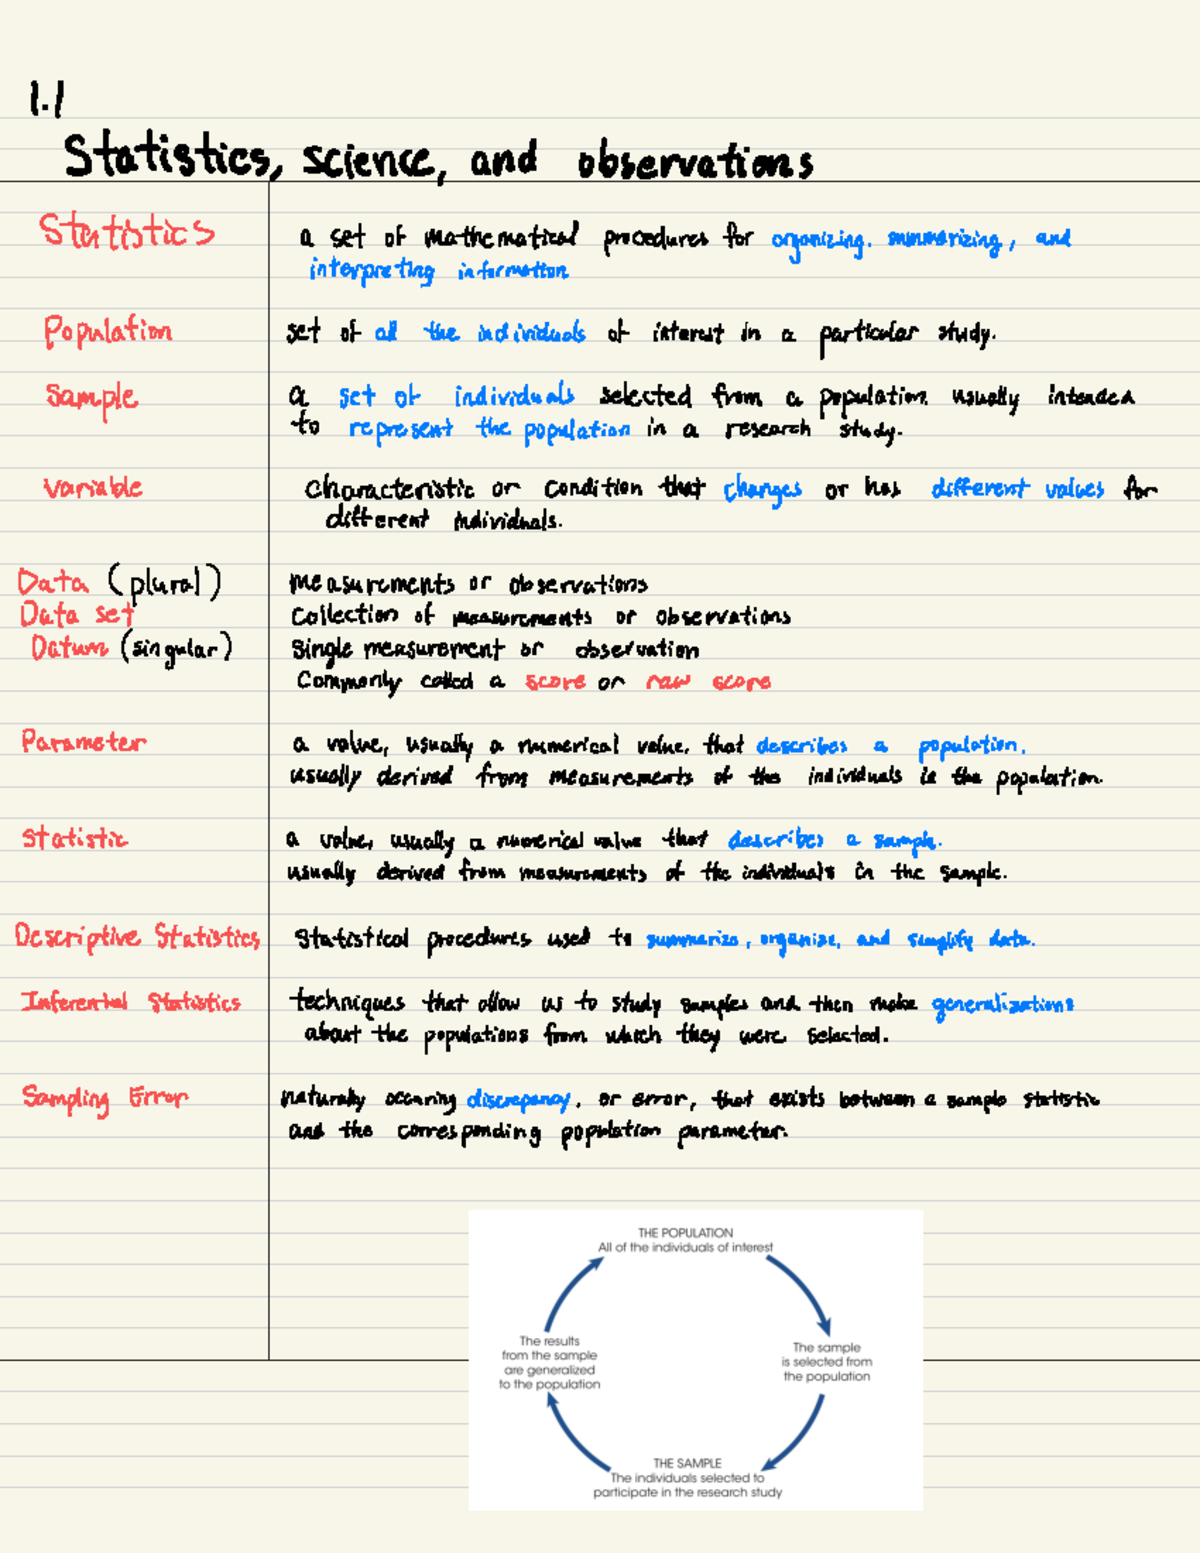 1.1
Statistics, science, and observations
Statistics
a set of mathematical procedures for organizing, summarizing, and
interpreting information
Population
set of all the individuals of interest in a particular study.
Sample
a set of individuals selected from a population, usually intended
to represent the population in a research study.
Variable
Characteristic or condition that changes or has different values for
different individuals.
Data (plural)
measurements or observations
Data set
Collection of measurements or observations
Datum (singular)
Single measurement or observation
Commonly called a score or raw score
Parameter
a value, usually a numerical value, that describes a population.
usually derived from measurements of the individuals in the population.
Statistic
a value, usually a numerical value that describes a sample.
usually derived from measurements of the individuals in the sample.
Descriptive Statistics
Statistical procedures used to summarize, organize, and simplify data.
Inferential Statistics
techniques that allow us to study samples and then make generalizations
about the populations from which they were selected.
Sampling Error
naturally occuring discrepancy, or error, that exists between a sample statistic
and the corresponding population parameter.
THE POPULATION
All of the individuals of interest
The results
from the sample
are generalized
to the population
The sample
is selected from
the population
THE SAMPLE
The individuals selected to
participate in the research study